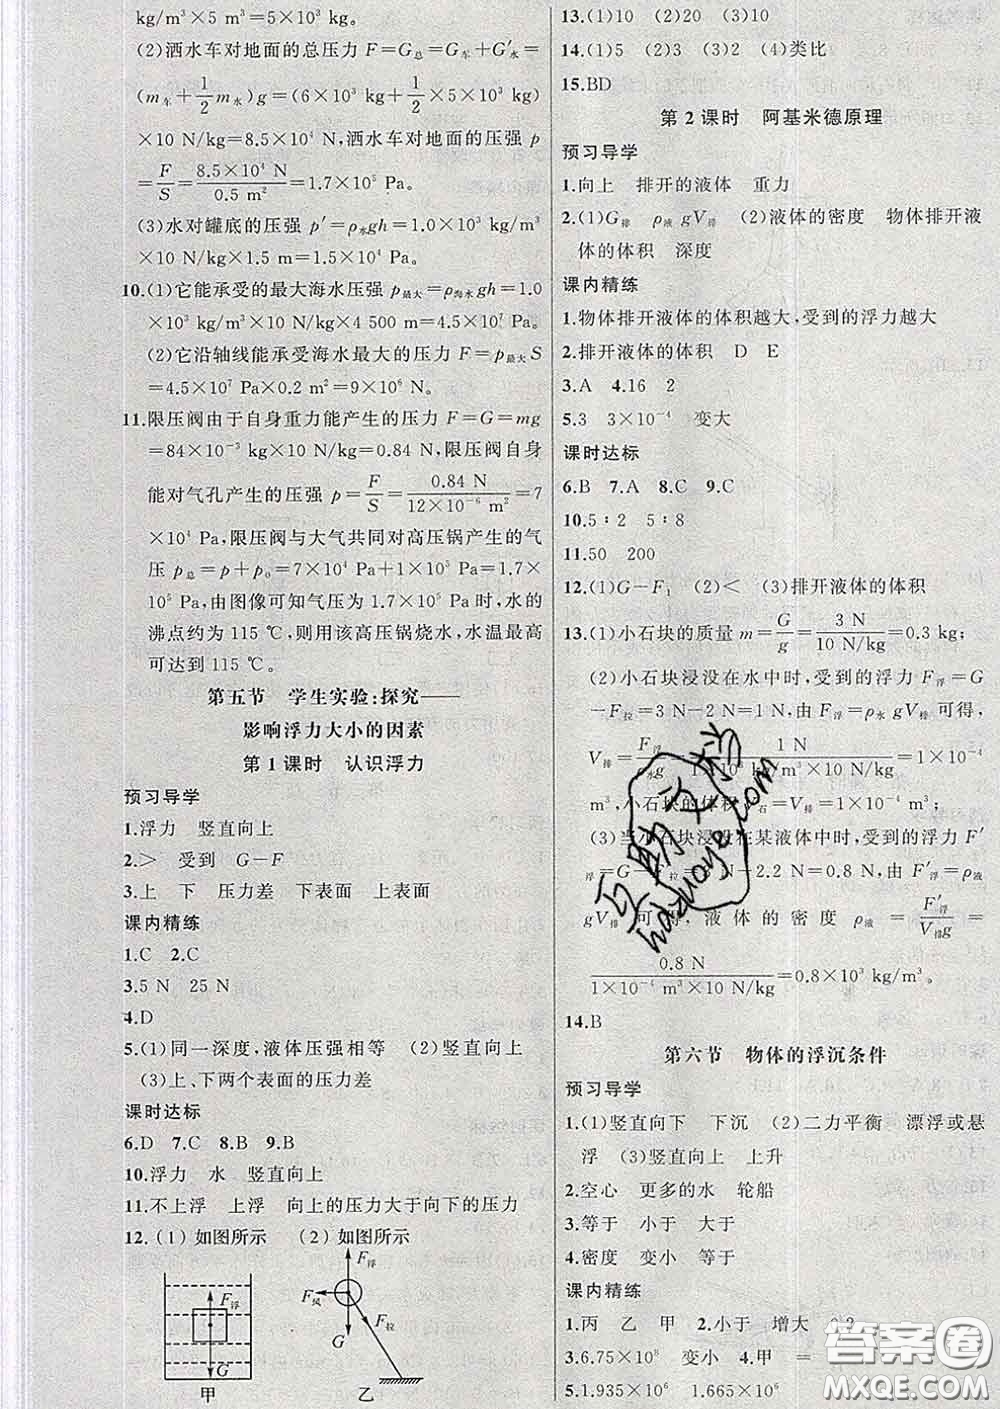 kg/m³×5 m³=5×10³ kg。
(2)洒水车对地面的总压力 F=G总=G车+G′水=
(m车+1/2 m水)g=(6×10³ kg+1/2×5×10³ kg)
×10 N/kg=8.5×10⁴ N,洒水车对地面的压强 p
=F/S=8.5×10⁴ N/0.5 m²=1.7×10⁵ Pa。
(3)水对罐底的压强 p′=ρ水gh=1.0×10³ kg/m³
×10 N/kg×1.5 m=1.5×10⁴ Pa。
10.(1)它能承受的最大海水压强 p最大=ρ海水gh=1.0
×10³ kg/m³×10 N/kg×4 500 m=4.5×10⁷ Pa。
(2)它沿轴线能承受海水最大的压力 F=p最大S
=4.5×10⁷ Pa×0.2 m²=9×10⁶ N。
11.限压阀由于自身重力能产生的压力 F=G=mg
=84×10⁻³ kg×10 N/kg=0.84 N,限压阀自身
能对气孔产生的压强 p=F/S=0.84 N/12×10⁻⁶ m²=7
×10⁴ Pa,限压阀与大气共同对高压锅产生的气
压 p总=p+p₀=7×10⁴ Pa+1×10⁵ Pa=1.7×
10⁵ Pa,由图像可知气压为 1.7×10⁵ Pa 时,水的
沸点约为 115 ℃,则用该高压锅烧水,水温最高
可达到 115 ℃。
第五节 学生实验:探究——
影响浮力大小的因素
第 1 课时 认识浮力
预习导学
1.浮力 竖直向上
2.> 受到 G-F
3.上 下 压力差 下表面 上表面
课内精练
1.C 2.C
3.5 N 25 N
4.D
5.(1)同一深度,液体压强相等 (2)竖直向上
(3)上、下两个表面的压力差
课时达标
6.D 7.C 8.B 9.B
10.浮力 水 竖直向上
11.不上浮 上浮 向上的压力大于向下的压力
12.(1) 如图所示 (2) 如图所示
F浮
G
甲
F浮
F风
F拉
G
乙
13.(1)10 (2)20 (3)10
14.(1)5 (2)3 (3)2 (4)类比
15.BD
第 2 课时 阿基米德原理
预习导学
1.向上 排开的液体 重力
2.(1)G排 ρ液 gV排 (2)液体的密度 物体排开液
体的体积 深度
课内精练
1.物体排开液体的体积越大,受到的浮力越大
2.排开液体的体积 D E
3.A 4.16 2
5.3 3×10⁻⁴ 变大
课时达标
6.B 7.A 8.C 9.C
10.5∶2 5∶8
11.50 200
12.(1)G-F₁ (2)< (3)排开液体的体积
13.(1)小石块的质量 m=G/g=3 N/10 N/kg=0.3 kg;
(2)小石块浸没在水中时,受到的浮力 F浮=G
-F拉=3 N-2 N=1 N,由 F浮=ρ水 gV排可得,
V排=F浮/ρ水g=1 N/1×10³ kg/m³×10 N/kg=1×10⁻⁴
m³,小石块的体积 V石=V排=1×10⁻⁴ m³;
(3)当小石块浸没在某液体中时,受到的浮力 F′
浮=G-F′拉=3 N-2.2 N=0.8 N,由 F′浮=ρ液
gV排可得,液体的密度 ρ液=F′浮/V排g=
0.8 N/1×10⁻⁴ m³×10 N/kg=0.8×10³ kg/m³。
14.B
第六节 物体的浮沉条件
预习导学
1.(1)竖直向下 下沉 (2)二力平衡 漂浮或悬
浮 (3)竖直向上 上升
2.空心 更多的水 轮船
3.等于 小于 大于
4.密度 变小 等于
课内精练
1.丙 乙 甲 2.小于 增大 0.2
3.6.75×10⁸ 变小 4.甲 =
5.1.935×10⁶ 1.665×10⁶
互助文档
hazuoye.com
答案圈
MXQE.COM